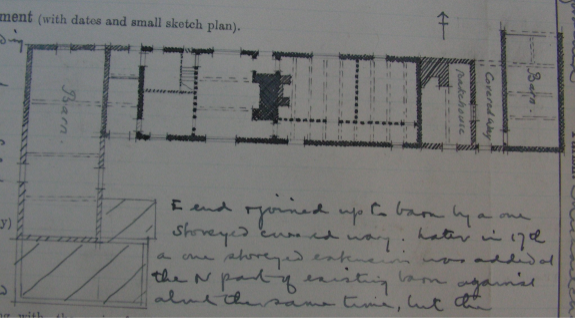 ment (with dates and small sketch plan).
Barn.
Bakehouse
Covered Way
Barn.
E end rejoined up to barn by a one
storeyed covered way. Later in 17th
a one storeyed extension was added at
the N part of existing barn against
about the same time, but the